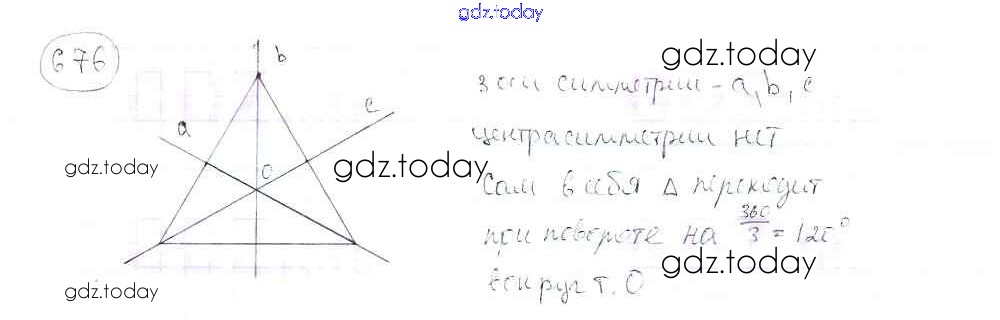 gdz.today
676
b
gdz.today
a
c
3 оси симметрии - a, b, c
центра симметрии нет
gdz.today
O
gdz.today
Сам в себя Δ переходит
gdz.today
при повороте на 360/3 = 120°
вокруг т. O
gdz.today
gdz.today